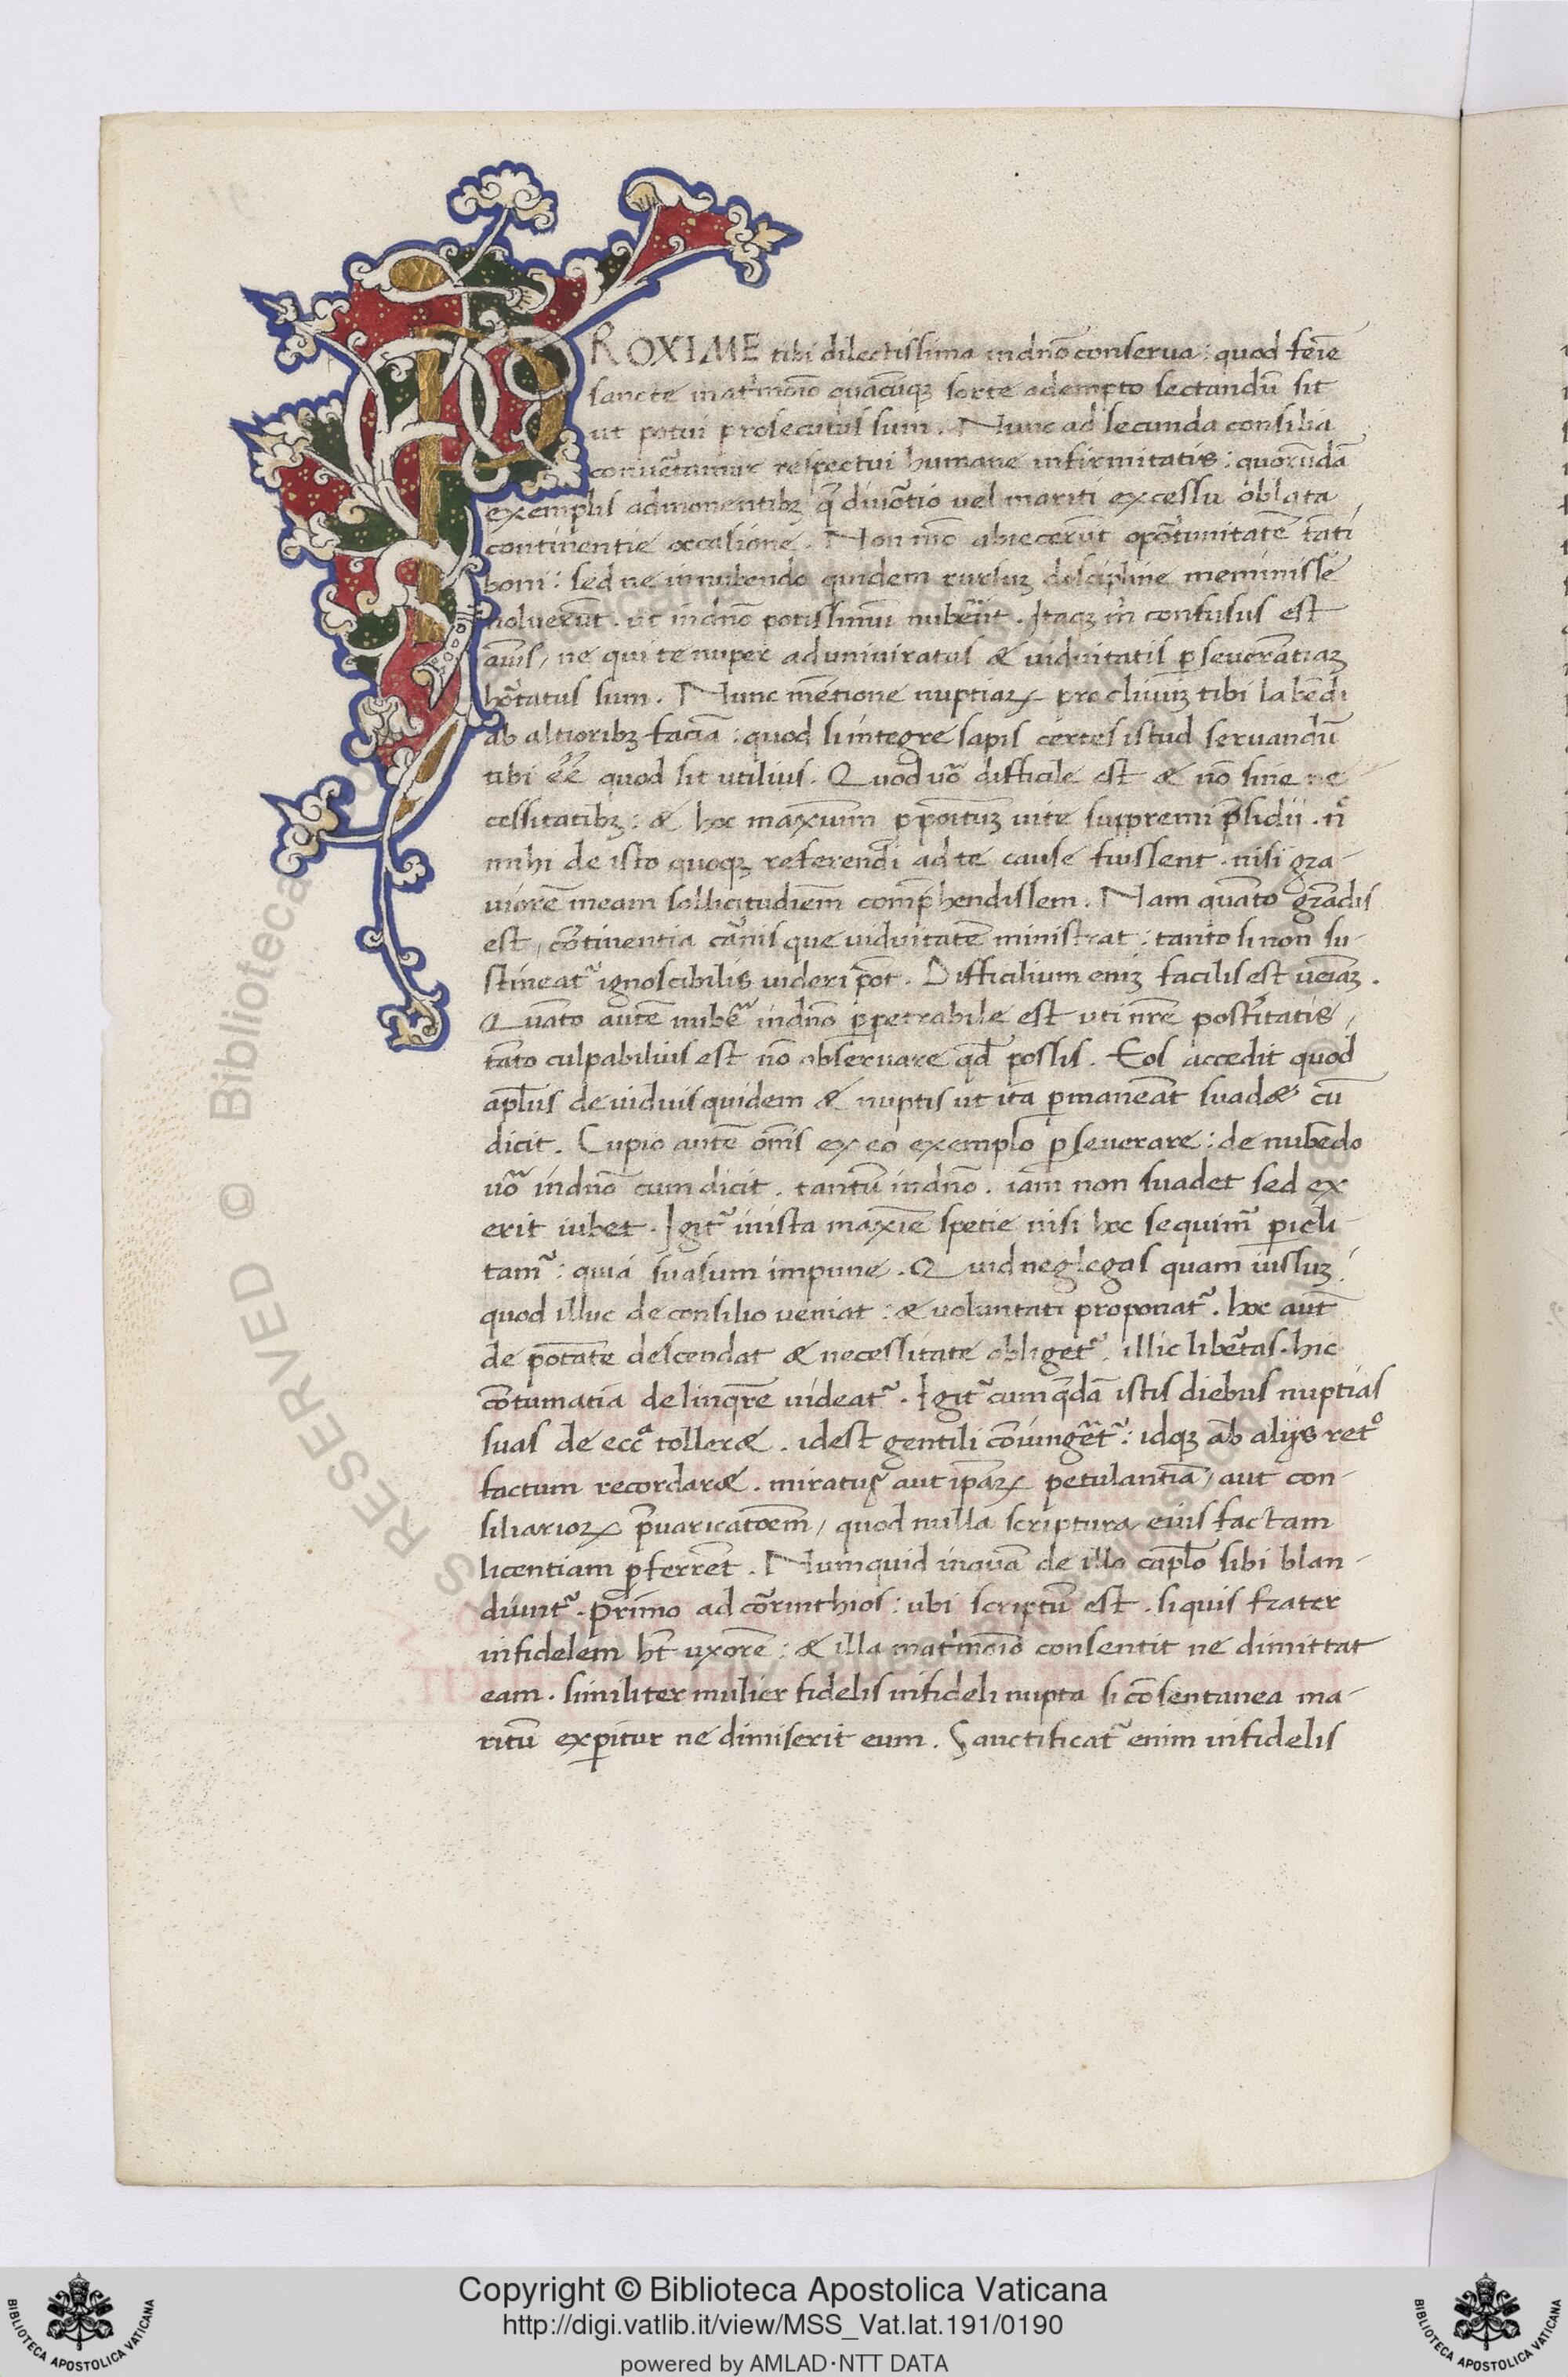 PROXIME tibi dilectissima in dn̄o conserua : quod fēīe
sancte mat̄rmōīo quācūqꝫ sorte adempto sectandū sit
ut potui prosecutus sum . Nunc ad secunda consilia
conuētamur respectui humane infirmitatis : quorūdā
exemplis admonentibꝫ q̄ diuōtio vel mariti excessu oblata
continentie occasione . Non mō abiecerūt opōtunitatē tāti
boni : sed ne in nubendo quidem rursuꝫ discipline meminisse
uoluerūt . ut in dn̄o potissimū nubēīt . Itaqꝫ m̄ confusus est
aīus , ne qui te nuper ad uniuiratus & uiduitatis ꝑseuerātiaꝫ
hōtatus sum . Nunc mētione nuptiaꝝ procliuiuꝫ tibi labēdi
ab altioribꝫ faciā : quod si integre sapis certe s istud seruandū
tibi ēē quod sit utilius . Quod uō difficile est & nō sine ne
cessitatibꝫ : & hoc maxīum ꝓpoītuꝫ uite suppremi p̄sidii . n̊
mihi de isto quoqꝫ referendi ad te cause fuissent . nisi gra-
uiorē meam sollicitudīem comp̄hendissem . Nam quāto grādis
est , cōtinentia cānis que uiduitatē ministrat : tanto si non su-
stineat᷑ ignoscibilis uideri pōt . Difficilium eniꝫ facilis est ueīaꝫ .
Quāto autē nubē in dn̄o ꝑpetrabile est uti nr̄e postītatis ,
tāto culpabilius est nō obseruare qđ possis . Eos accedit quod
apl̄us de uiduis quidem & nuptis ut ita ꝑmaneāt suad& cū
dicit . Cupio autē om̄s ex eo exemplo ꝑseuerare : de nubēdo
uō in dn̄o cum dicit . tantū in dn̄o . iam non suadet sed ex
erit iubet . Igit᷑ in ista maxīe spetie nisi hoc sequim᷑ ꝑicli-
tam᷑ : quia suasum impune . Quid neglegas quam iussuꝫ ,
quod illuc de consilio ueniat : & voluntati proponat᷑ . hoc aut̄
de potāte descendat & necessitate obliget᷑ . illic libētas . hic
cōtumatia delinqr̄e uideat᷑ . Igit᷑ cum q̄dā istis diebus nuptias
suas de ecc̄a toller& . idest gentili cōiungēt᷑ : idqꝫ ab alijs ret̊
factum recordar& . miratus aut ip̄aꝝ petulantiā , aut con-
siliarioꝝ p̄uaricatōem , quod nulla scriptura eius factam
licentiam ꝓferrēt . Numquid inquā de illo capl̄o sibi blan-
diūnt᷑ . primo ad cōrinthios : ubi scriptū est . siquis frater
infidelem ht̄ uxorē : & illa mat̄rmōīo consentit ne dimittat
eam . similiter mulier fidelis infideli nupta si cōsentanea ma-
ritū exꝑitur ne dimiserit eum . Sanctificat᷑ enim infidelis
Copyright © Biblioteca Apostolica Vaticana
http://digi.vatlib.it/view/MSS_Vat.lat.191/0190
powered by AMLAD·NTT DATA
BIBLIOTECA APOSTOLICA VATICANA
BIBLIOTECA APOSTOLICA VATICANA